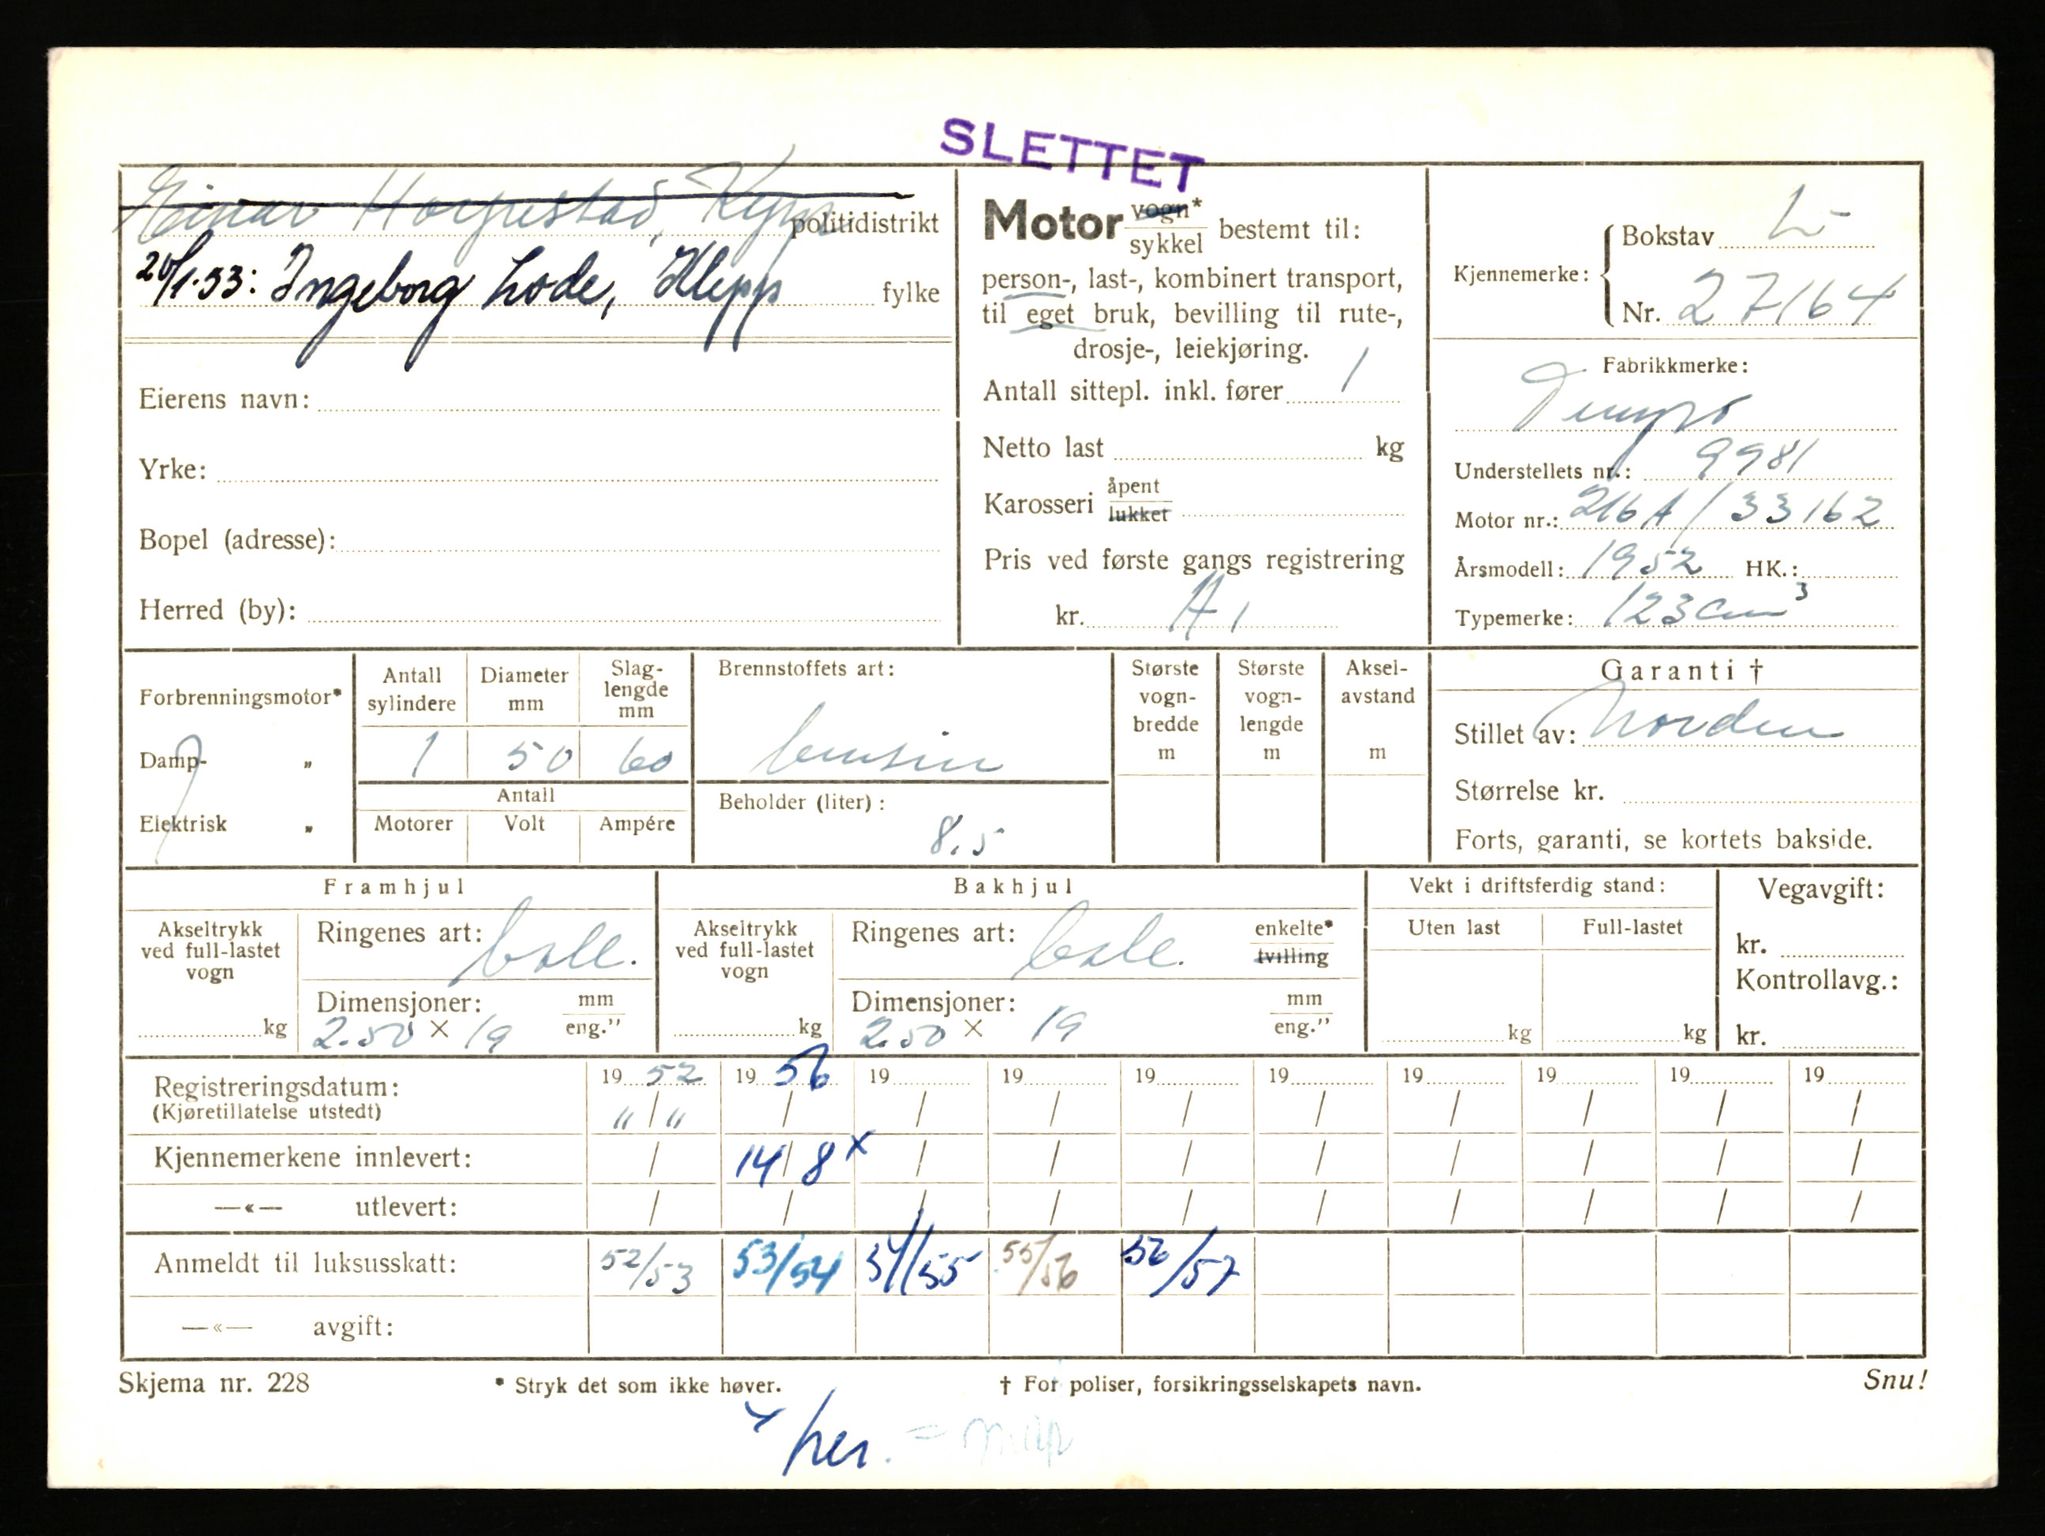 SLETTET
Einar Horpestad, Klepp politidistrikt
20/1.53: Ingeborg Lode, Klepp fylke
Eierens navn:
Yrke:
Bopel (adresse):
Herred (by):
Motor vogn* sykkel bestemt til:
person-, last-, kombinert transport,
til eget bruk, bevilling til rute-,
drosje-, leiekjøring.
Antall sittepl. inkl. fører 1
Netto last kg
Karosseri åpent lukket
Pris ved første gangs registrering
kr. A,
Kjennemerke:
Bokstav L
Nr. 27164
Fabrikkmerke:
Tempo
Understellets nr.: 9981
Motor nr.: 216A/33162
Årsmodell: 1952 HK.:
Typemerke: 123 cm³
Forbrenningsmotor*
Damp- „
Elektrisk „
Antall sylindere
Diameter mm
Slag-lengde mm
1 50 60
Antall
Motorer Volt Ampére
Brennstoffets art:
bensin
Beholder (liter):
8.5
Største vogn-bredde m
Største vogn-lengde m
Aksel-avstand m
Garanti †
Stillet av: Norden
Størrelse kr.
Forts, garanti, se kortets bakside.
Framhjul
Akseltrykk ved full-lastet vogn
kg
Ringenes art: ball.
Dimensjoner: mm eng."
2.50 × 19
Bakhjul
Akseltrykk ved full-lastet vogn
kg
Ringenes art: ball. enkelte* tvilling
Dimensjoner: mm eng."
2.50 × 19
Vekt i driftsferdig stand:
Uten last Full-lastet
kg kg
Vegavgift:
kr.
Kontrollavg.:
kr.
Registreringsdatum: 1952 1956 19 19 19 19 19 19 19 19
(Kjøretillatelse utstedt) " / " / / / / / / / / /
Kjennemerkene innlevert: / 14/8 x / / / / / / / /
—«— utlevert: / / / / / / / / / /
Anmeldt til luksusskatt: 52/53 53/54 54/55 55/56 56/57
—«— avgift:
Skjema nr. 228 * Stryk det som ikke høver. † For poliser, forsikringsselskapets navn. Snu!
x her.